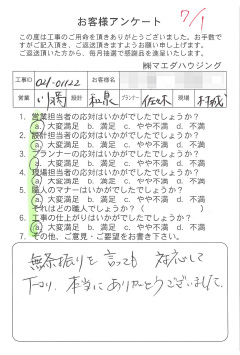 7/1
お客様アンケート
この度は工事のご用命を頂きありがとうございました。お手数で
すがご記入頂き、ご返送頂きますようお願い申し上げます。
ご返送頂いた方から、毎月抽選で感謝品を進呈いたします。
㈱マエダハウジング
工事ID 024-01122 お客様名
営業 設計 和泉 プランナー 佐々木 現場
1. 営業担当者の応対はいかがでしたでしょうか?
a. 大変満足 b. 満足 c. やや不満 d. 不満
2. 設計担当者の応対はいかがでしたでしょうか?
a. 大変満足 b. 満足 c. やや不満 d. 不満
3. プランナーの応対はいかがでしたでしょうか?
a. 大変満足 b. 満足 c. やや不満 d. 不満
4. 現場担当者の応対はいかがでしたでしょうか?
a. 大変満足 b. 満足 c. やや不満 d. 不満
5. 職人のマナーはいかがでしたでしょうか?
a. 大変満足 b. 満足 c. やや不満 d. 不満
それはどの職人でしょうか? ( )
6. 工事の仕上がりはいかがでしたでしょうか?
a. 大変満足 b. 満足 c. やや不満 d. 不満
7. その他、ご意見・ご要望をお書き下さい。
無茶振りを言っても 対応して
下さり、本当にありがとうございました。